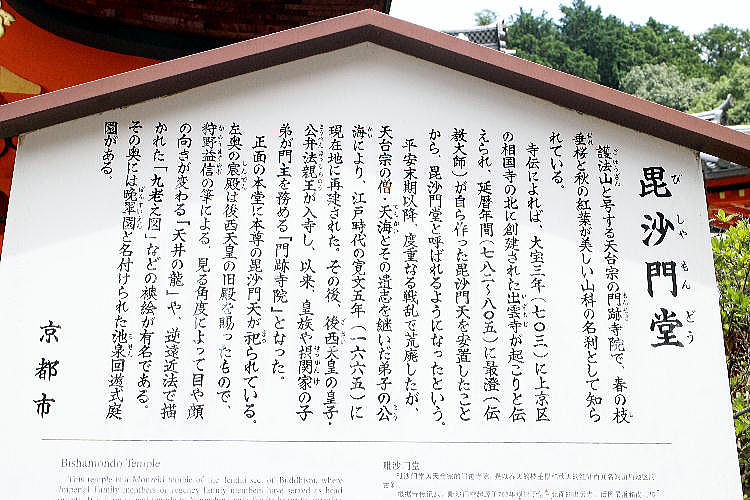 毘沙門堂
びしゃもんどう
護法山と号する天台宗の門跡寺院で、春の枝
垂桜と秋の紅葉が美しい山科の名刹として知ら
れている。
寺伝によれば、大宝三年(七〇三)に上京区
の相国寺の北に創建された出雲寺が起こりと伝
えられ、延暦年間(七八二〜八〇五)に最澄(伝
教大師)が自ら作った毘沙門天を安置したこと
から、毘沙門堂と呼ばれるようになったという。
平安末期以降、度重なる戦乱で荒廃したが、
天台宗の僧・天海とその遺志を継いだ弟子の公
海により、江戸時代の寛文五年(一六六五)に
現在地に再建された。その後、後西天皇の皇子・
公弁法親王が入寺し、以来、皇族や摂関家の子
弟が門主を務める「門跡寺院」となった。
正面の本堂に本尊の毘沙門天が祀られている。
左奥の宸殿は後西天皇の旧殿を賜ったもので、
狩野益信の筆による、見る角度によって目や顔
の向きが変わる「天井の龍」や、逆遠近法で描
かれた「九老之図」などの襖絵が有名である。
その奥には晩翠園と名付けられた池泉回遊式庭
園がある。
京都市
Bishamondo Temple
This temple is a Monzeki temple of the Tendai sect of Buddhism, where
Imperial family members or regency family members have served as head
毗沙门堂